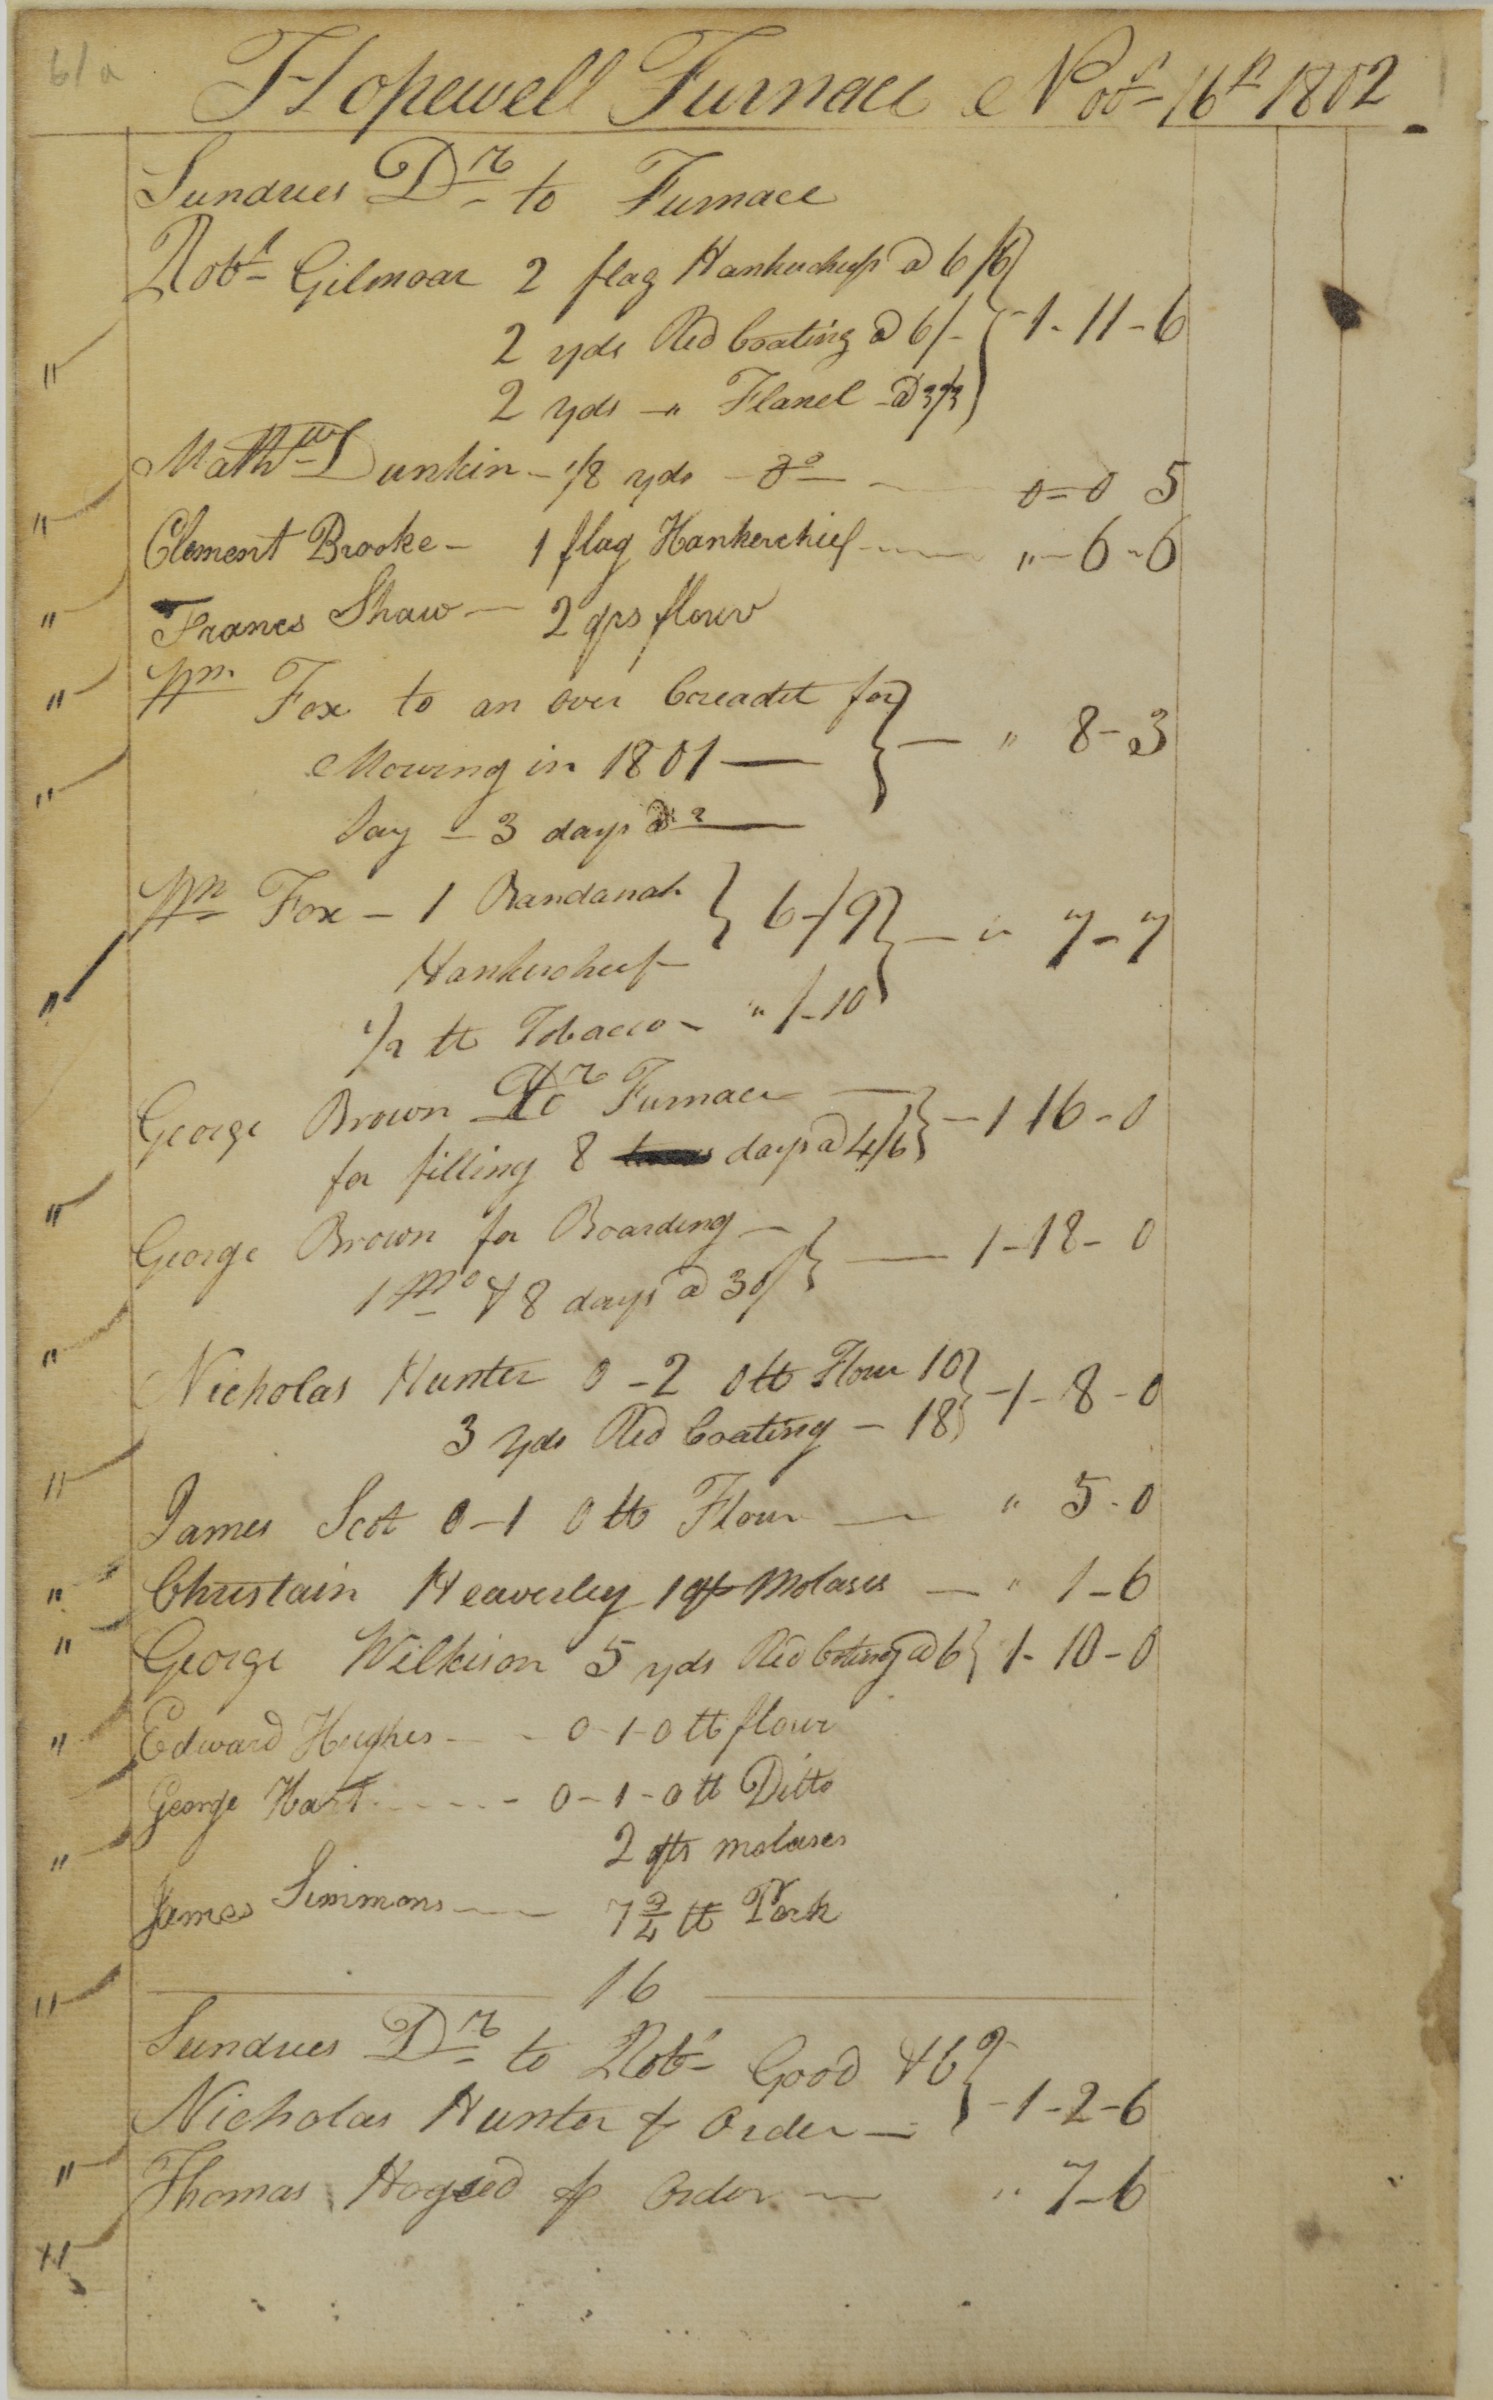 61a
Hopewell Furnace Nobr 16th 1802
Sundries Dr to Furnace
Robt Gilmoar 2 flag Hankercheifs @ 6/6
2 yds Red Coating @ 6/- } 1-11-6
2 yds -„ Flanel - @ 3/3
Mathw Dunkin - 1/8 yds - Do - 0=0 5
Clement Brooke - 1 flag Hankerchief - „-6-6
Frances Shaw - 2 qrs flour
Wm Fox to an over Creadit for
Mowing in 1801 — } — „ 8-3
Say - 3 days @
Wm Fox - 1 Bandanah } 6/9
Hankercheif - } — „ 7-7
1/2 tt Tobacco - „/-10
George Brown Dr To Furnace —
for filling 8 days @ 4/6 } - 1 16-0
George Brown for Boarding -
1 mo & 8 days @ 30/ } — 1-18-0
Nicholas Hunter 0-2 0 tt Flour 10
3 yds Red Coating - 18 } -1-8-0
James Scot 0-1 0 tt Flour — „ 5-0
Christain Heaverley 1 qt Molases — „ 1-6
George Wilkison 5 yds Red Coting @ 6 } 1-10-0
Edward Hughes - - 0-1-0 tt flour
George Hart - - - - 0-1-0 tt Ditto
2 qts molases
James Simmons — 7 3/4 tt Pork
16
Sundries Dr to Robt Good & Co
Nicholas Hunter p Order - } -1-2-6
Thomas p Order — „ 7-6